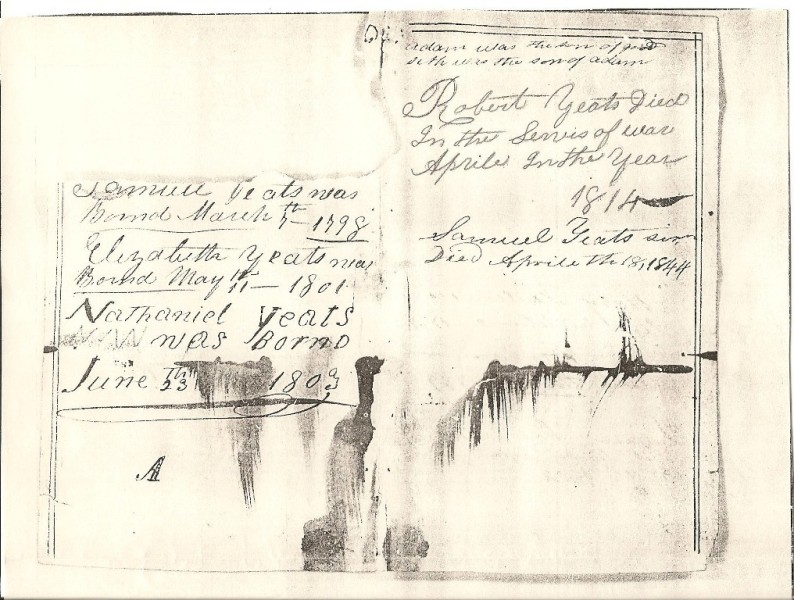 Samuel Yeats was
Bornd March 7th 1798
Elizabeth Yeats was
Bornd May 11th — 1801
Nathaniel Yeats
was Bornd
June 23Th 1803
A
Adam was the son of god
Seth was the son of adam
Robert Yeats Died
In the Servis of war
Aprile In the Year
1814
Samuel Yeats sin
Died Aprile th 18, 1844